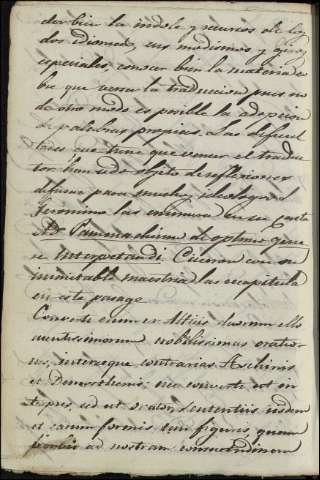 der bien la índole y recursos de los
dos idiomas, sus modismos y giros
especiales, conocer bien la materia so
bre que versa la traduccion, pues no
de otro modo es posible la adopcion
de palabras propias. Las dificul
tades que tiene que vencer el traduc
tor han sido objeto de reflexiones
difusas para muchos
Jeronimo las enumera en su carta
Ad Pammachium de optimo gene
re Interpretandi. Ciceron con su
inimitable maestria las recapitula
en este pasage
Converti enim ex Atticis duorum elo
quentissimorum nobilissimas oratio
nes, interseque contrarias Aeschinis
et Demosthenis; nec converti ut in
terpres, sed ut orator, sententiis iisdem
et earum formis tam figuris, quam
verbis ad nostram consuetudinem